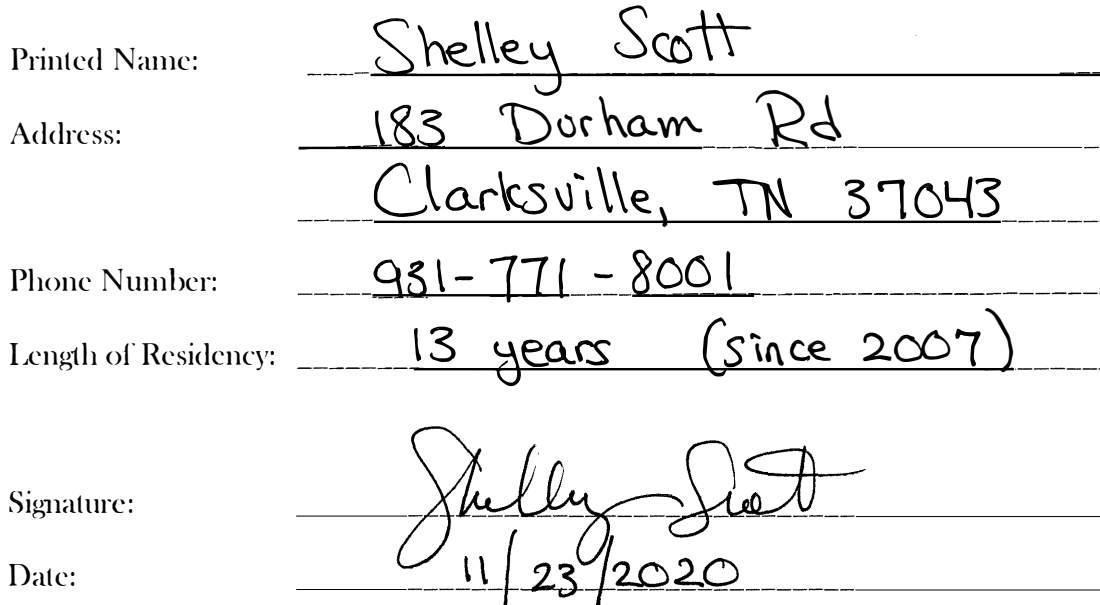 Printed Name: Shelley Scott
Address: 183 Durham Rd
Clarksville, TN 37043
Phone Number: 931-771-8001
Length of Residency: 13 years (since 2007)
Signature: Shelley Scott
Date: 11/23/2020